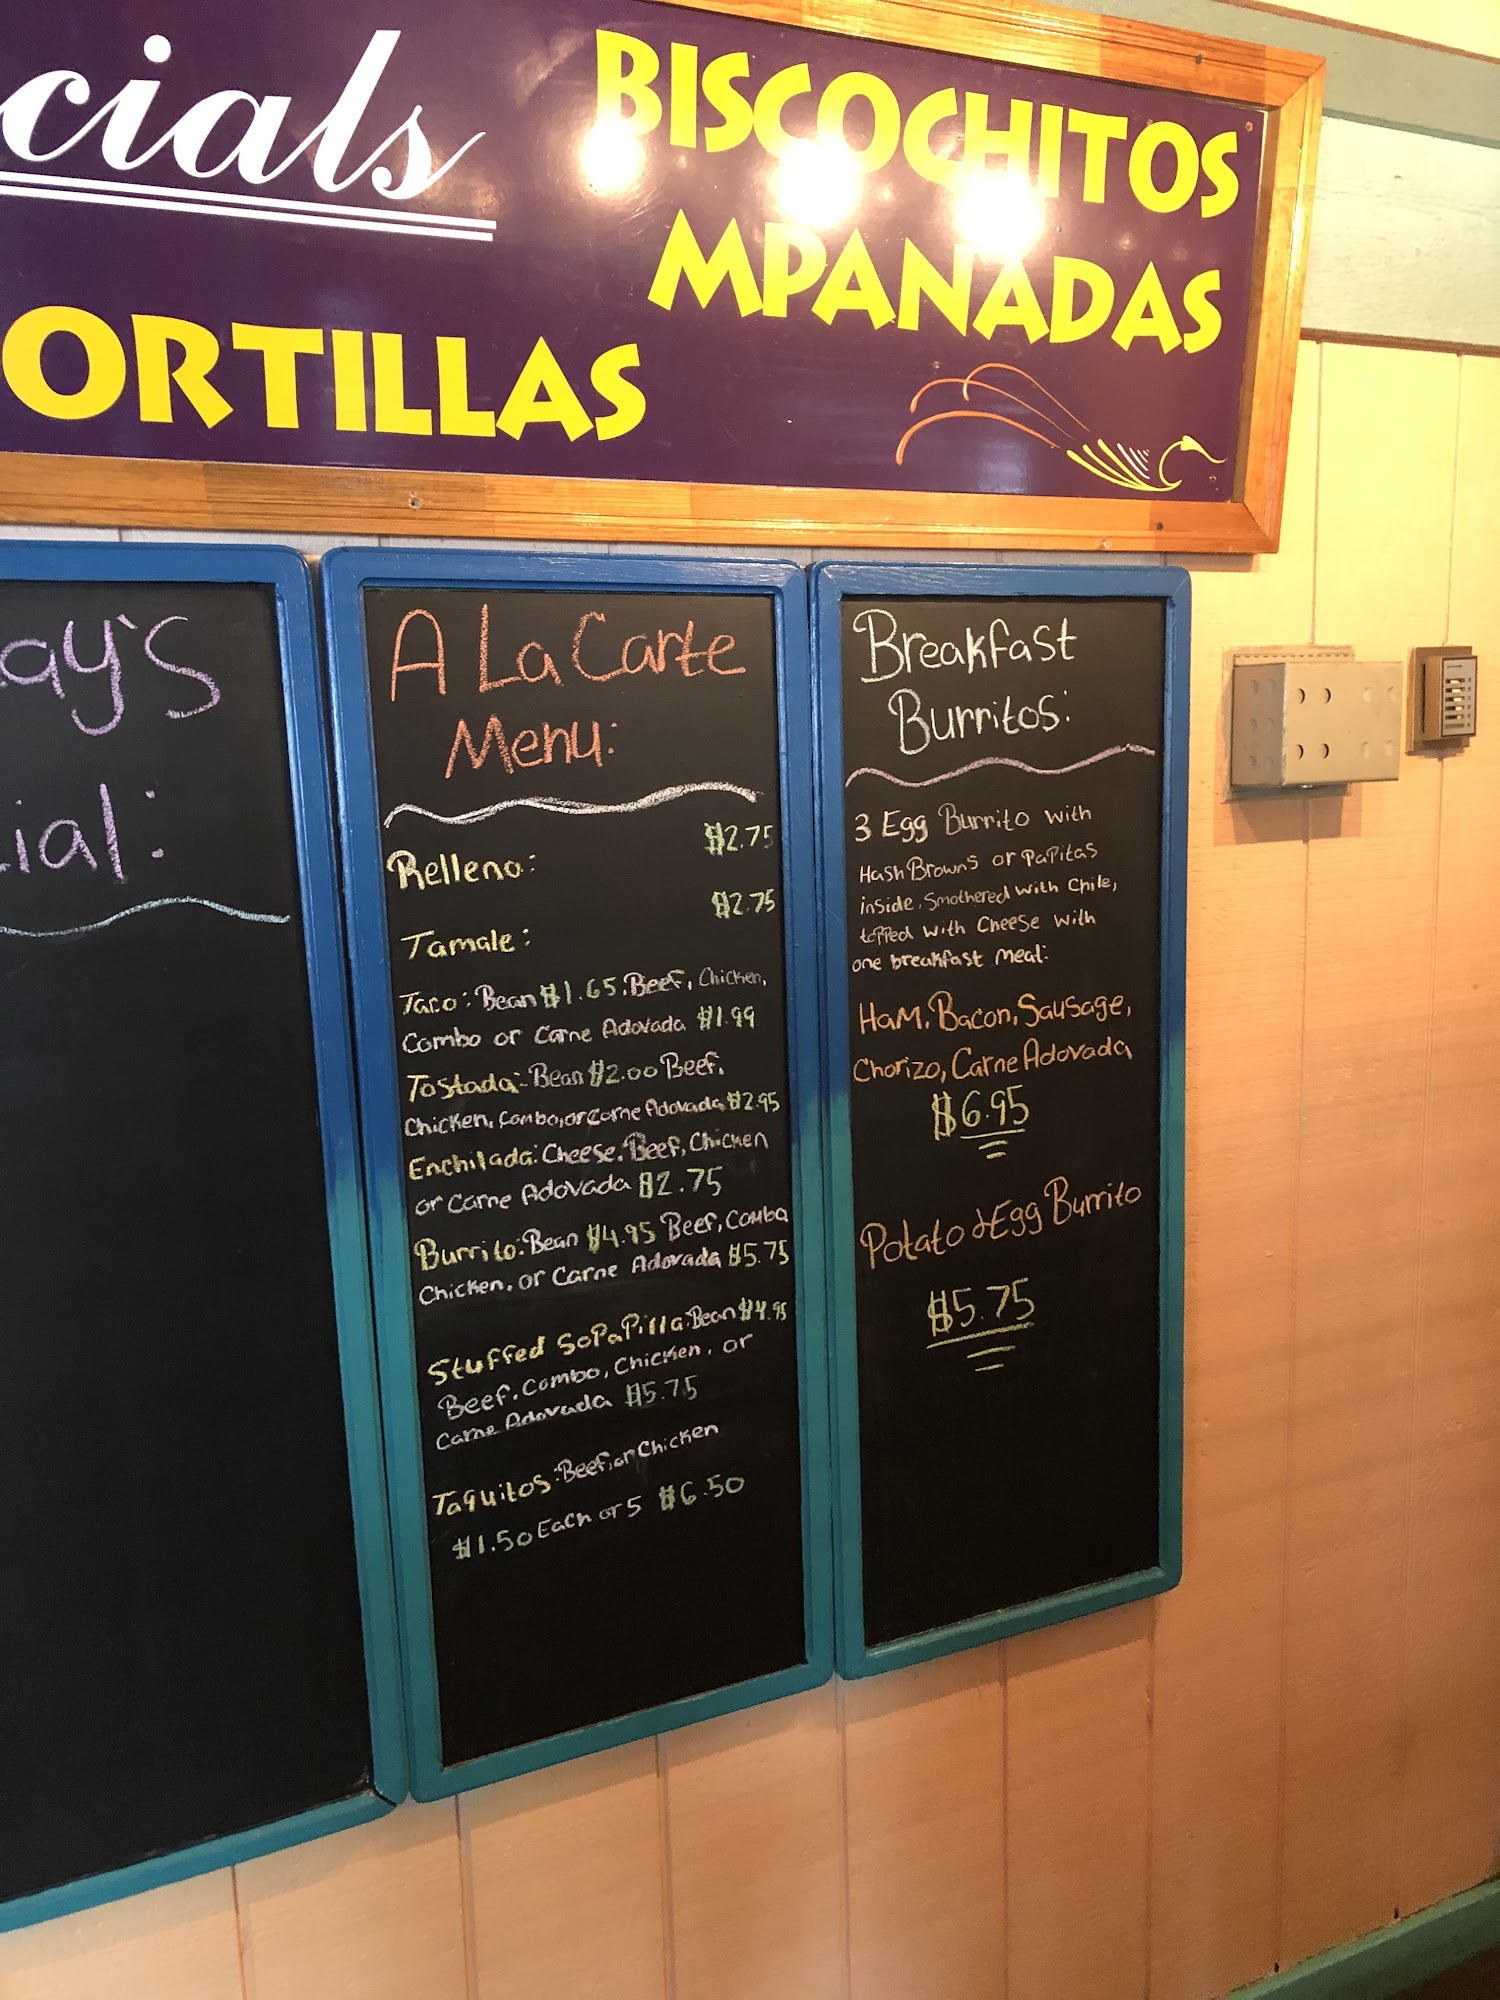 cials
BISCOCHITOS
MPANADAS
ORTILLAS
ay's
ial:
A La Carte
Menu:
Relleno: $2.75
Tamale: $2.75
Taco: Bean $1.65, Beef, Chicken,
Combo or Carne Adovada $1.99
Tostada: Bean $2.00 Beef,
Chicken, Combo, or Carne Adovada $2.95
Enchilada: Cheese, Beef, Chicken
or Carne Adovada $2.75
Burrito: Bean $4.95 Beef, Combo
Chicken, or Carne Adovada $5.75
Stuffed SoPaPilla: Bean $4.95
Beef, Combo, Chicken, or
Carne Adovada $5.75
Taquitos: Beef, or Chicken
$1.50 Each or 5 $6.50
Breakfast
Burritos:
3 Egg Burrito with
Hash Browns or PaPitas
inside, Smothered with Chile,
topped with Cheese with
one breakfast meat:
Ham, Bacon, Sausage,
Chorizo, Carne Adovada,
$6.95
Potato & Egg Burrito
$5.75